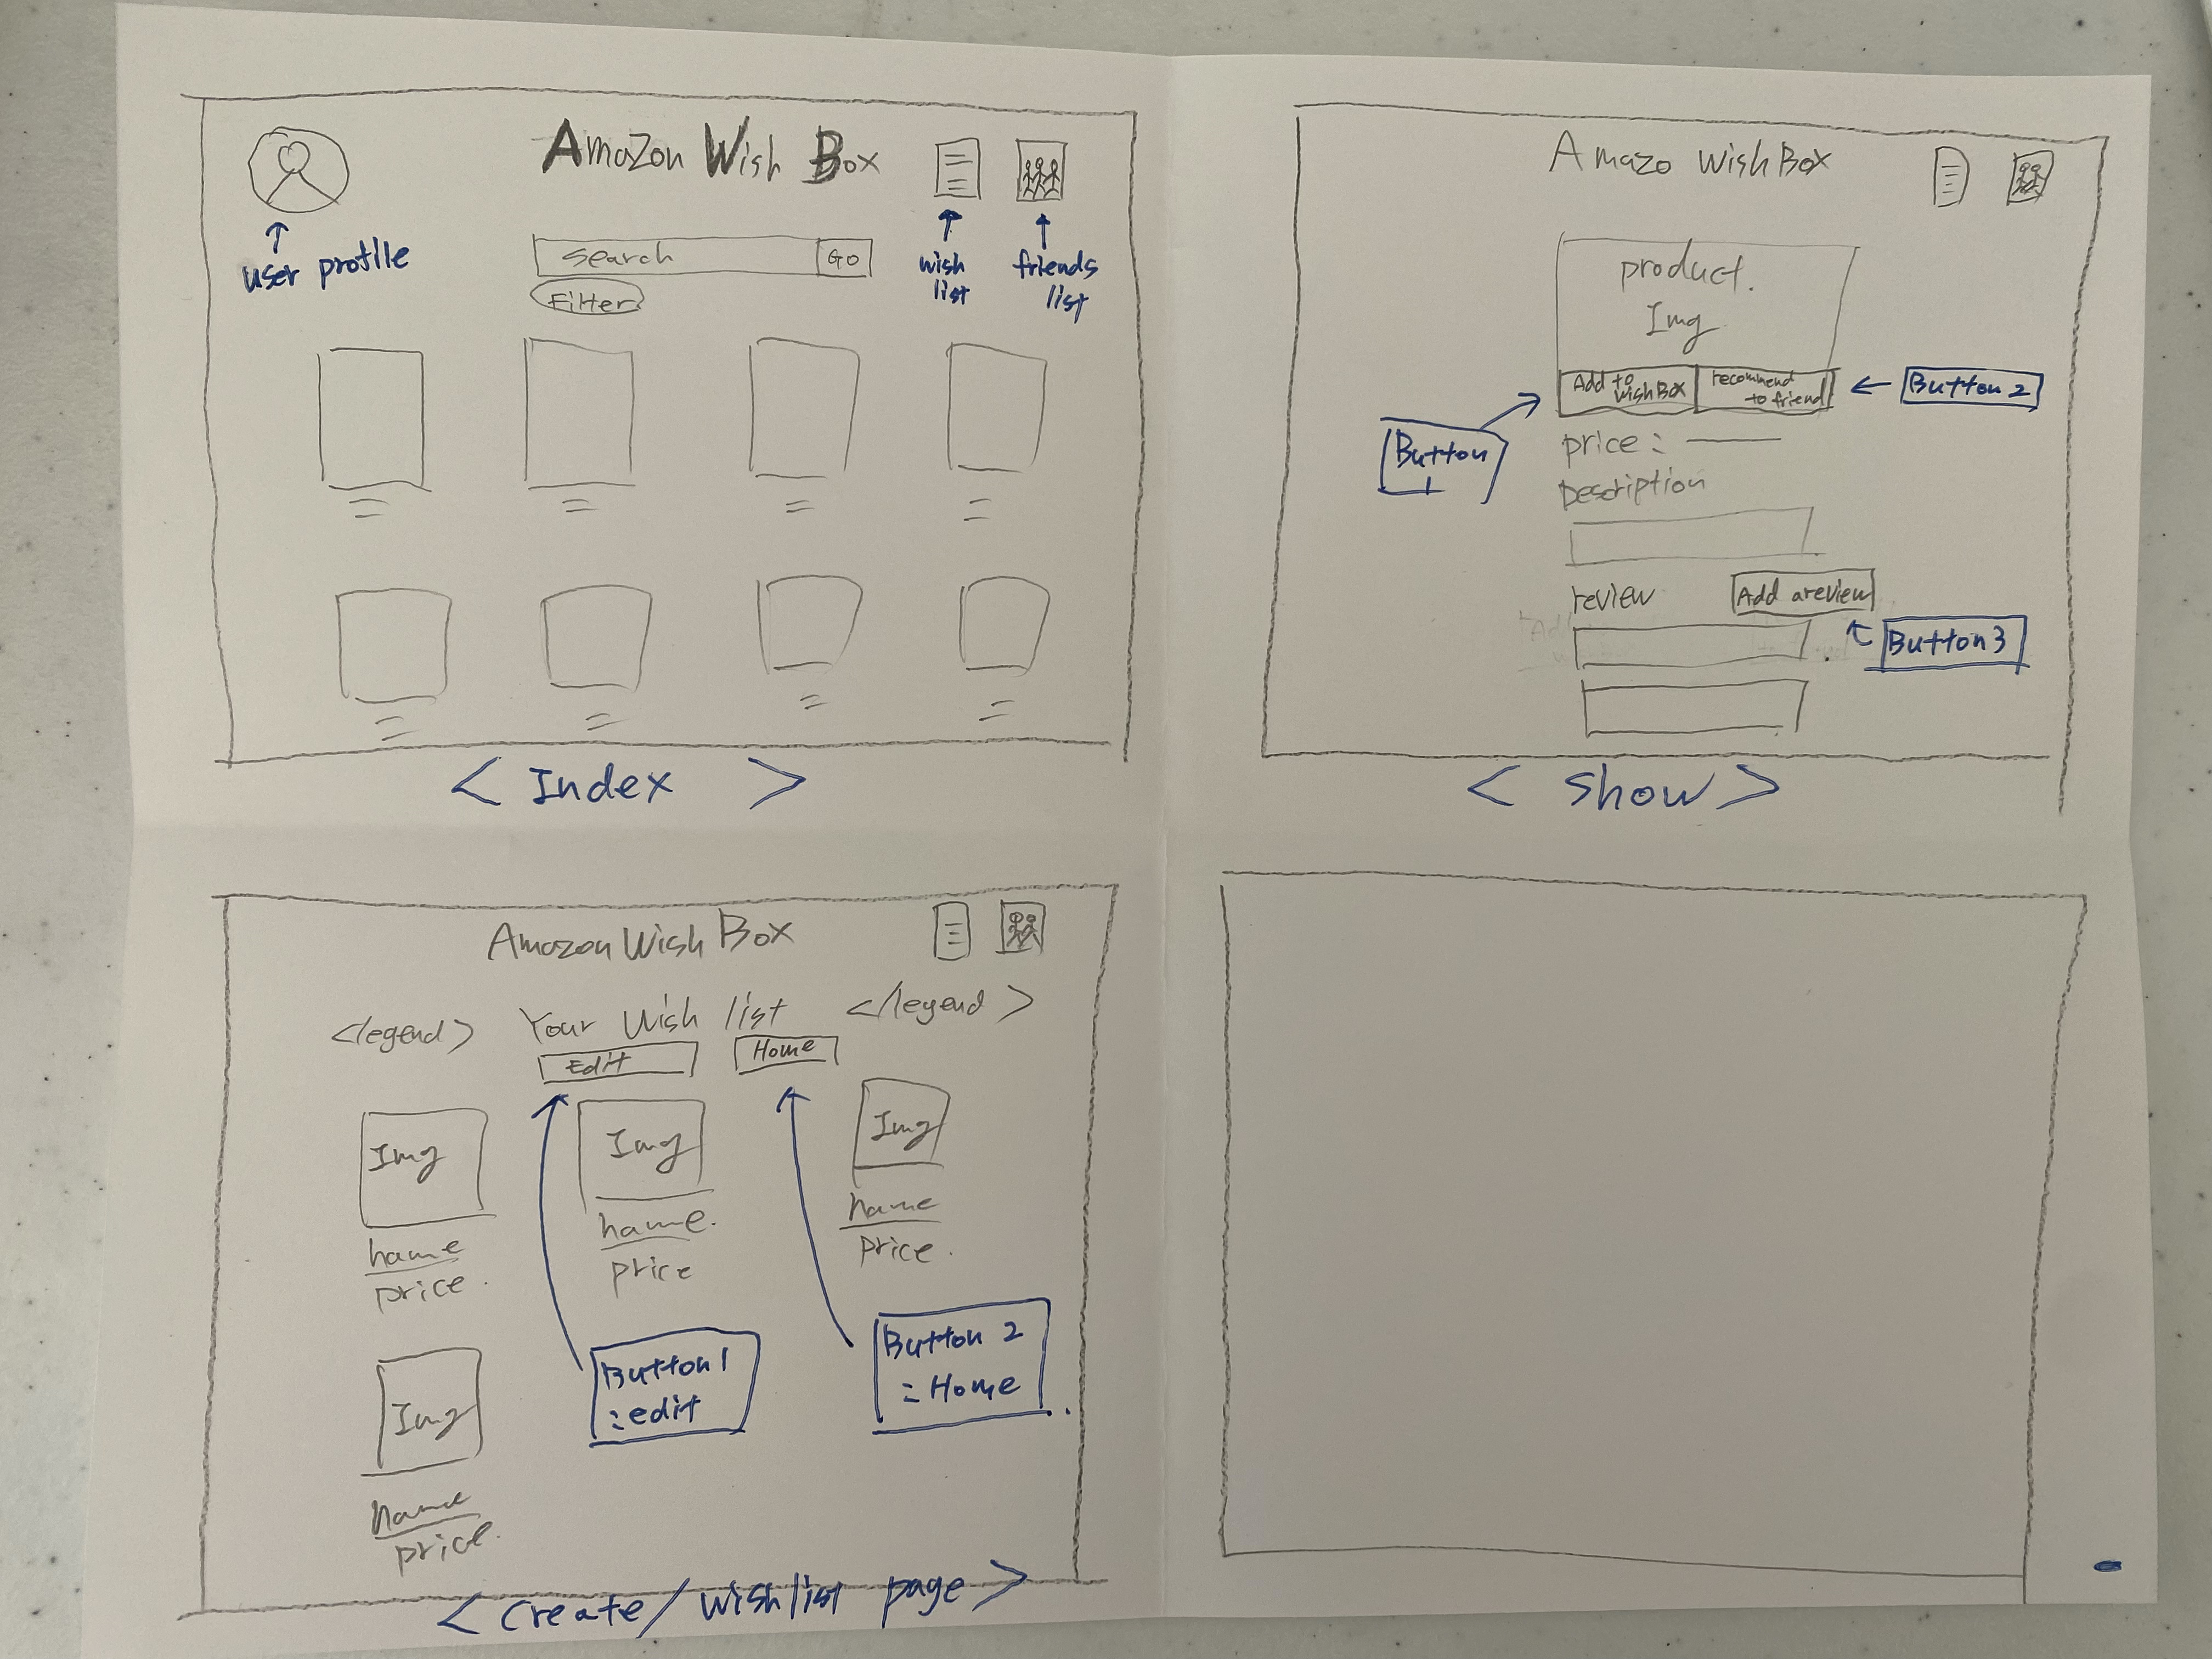 Amazon Wish Box
user profile
search
GO
Filter
wish
list
friends
list
< Index >
Amazo Wish Box
product.
Img
Add to
wish Box
recommend
to friend
Button
1
Button 2
price :
Description
review
Add a review
Button 3
< show >
Amazon Wish Box
<legend> Your Wish list </legend>
Edit
Home
Img
name
price.
Img
name.
price
Img
name
price.
Img
name
price.
Button 1
: edit
Button 2
: Home
< create / wishlist page >